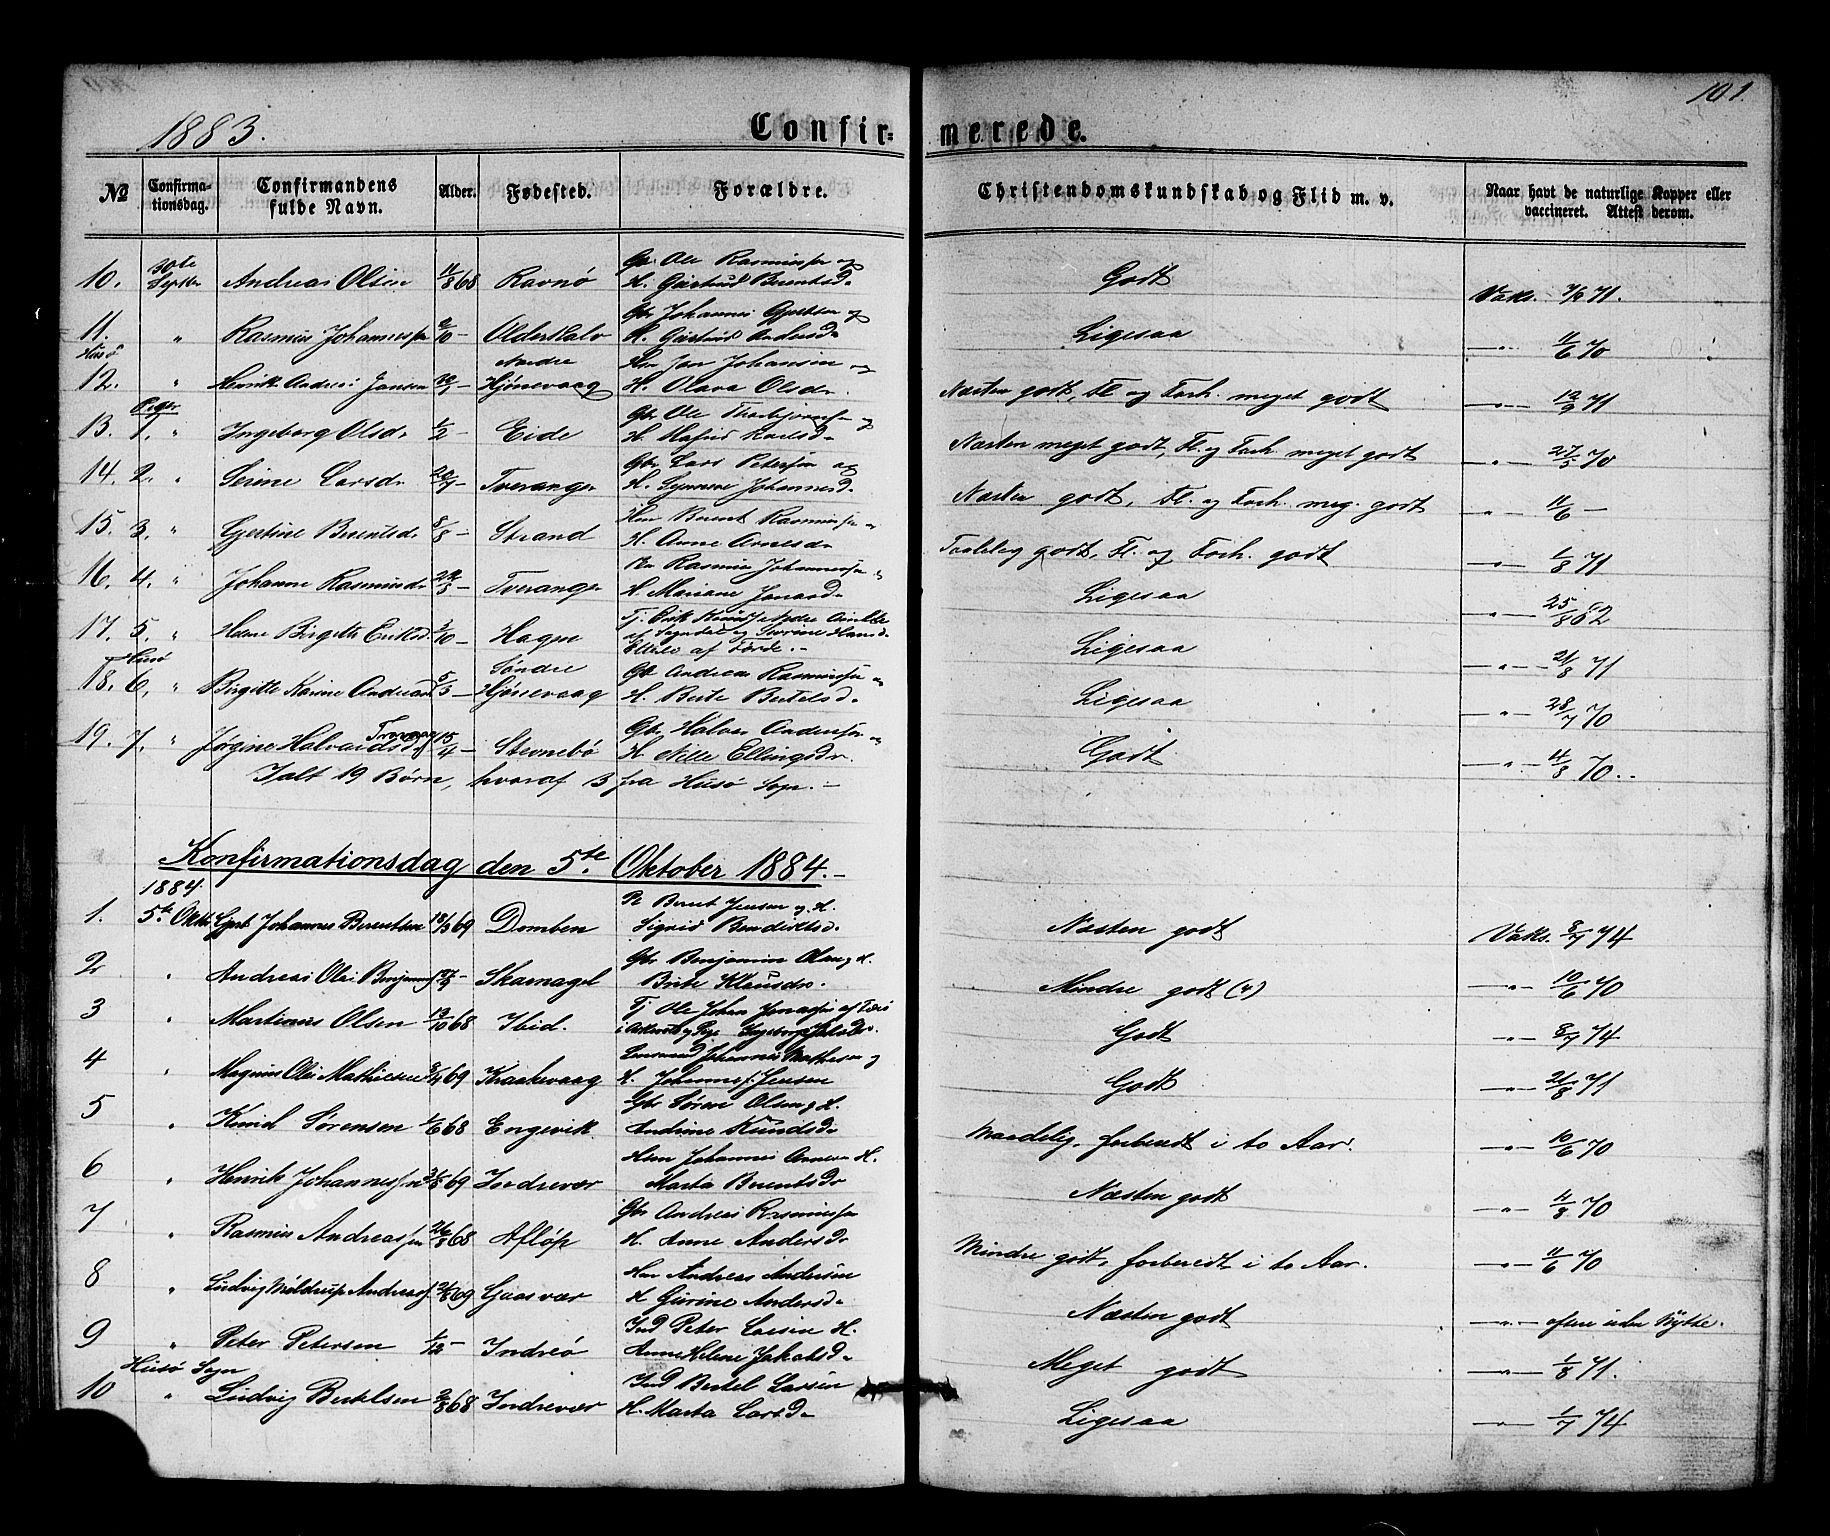 101.
1883.
Confirmerede.
No Confirmationsdag. Confirmandens fulde Navn. Alder. Fødested. Forældre. Christendomskundskab og Flid m. v. Naar havt de naturlige Kopper eller vaccineret. Attest derom.
10. 30te Septbr Andreas Olsen 11/8 68 Ravnø Gbr. Ole Rasmussen og H. Gjertrud Berentsd. Godt Vaks. 7/6 71.
11. " Rasmus Johannessen /10 - Olderskalv Gbr Johannes og H. Gjertrud Andersd. Ligesaa -"- 11/6 70
Husø
12. " Henrik Andreas Jansen - Nordre Hjønevaag Hm Jan Johansen og H. Olava Olsdr. Næsten godt, Fl. og Forh. meget godt -"- 12/9 71
Piger
13. 1. " Ingeborg Olsdr 1/2 - Eide Gbr Ole Thorbjørnsen og H. Karlsd. Næsten meget godt, Fl. og Forh. meget godt -"- 27/5 70
14. 2. " Serine Larsdr - Tveranger Gbr. Lars Petersen og H. Synneve Johannesd. Næsten godt, Fl. og Forh. meg. godt -"- 11/6 -
15. 3. " Gjertine Berentsdr 8/8 - Strand Hm Berent Rasmussen og H. Anne Arnesdr Taalelig godt, Fl. og Forh. godt -"- 1/8 71
16. 4. " Johanne Rasmusdr - Tveranger Rasmus Johannessen og H. Mariane Jonasd. Ligesaa -"- 25/8 82
17. 5. " Birgitte Eriksd. /10 - Hagen Tj. Erik af Sogndal og Serine Hansd. af Førde. - Ligesaa -"- 21/8 71
Husø
18. 6. " Birgitte Karine Andreasd /5 - Søndre Hjønevaag Gbr Andreas Rasmussen og H. Berte Bertelsd. Ligesaa -"- 28/7 70
19. 7. " Jørgine Halvardsdr 15/4 - Stevnebø Gbr. Halvor Andersen og H. Nille Ellingsdr. Godt -"- 11/8 70. -
Ialt 19 Børn, hvoraf 3 fra Husø Sogn. -
Konfirmationsdag den 5te Oktober 1884. -
1884.
1. 5te Oktb Gjert Johannes Berentsen 18/3 69 Domben Berent Jensen og H. Sigrid Bendiktsd. Næsten godt Vaks. 8/7 74
2 " Andreas Olai - Skarnagel Gbr Benjamin Olsen og H. Brite Klausdr. Mindre godt -"- 10/6 70
3 " Martinus Olsen /10 68 Ibid. Tj Ole Johan af i og Pige Ingeborg Godt -"- 8/7 74
4 " Magnus Olai Mathiesen /4 69 Kraakevaag Johannes Mathiesen og H. Johanne f. Jensen Godt -"- 21/8 71
5 " Knud Sørensen /6 68 Engevik Gbr Søren Olsen og H. Andrine Knudsd. Maadelig, forberedt i to Aar. -"- 10/6 70
6 " Henrik Johannessen /8 69 Indrevær Hm Johannes H. Marta Berentsdr Næsten godt -"- 11/8 70
7 " Rasmus Andreassen 26/8 68 Afløp Gbr Andreas Rasmussen H. Anne Andersdr Mindre godt, forberedt i to Aar. -"- 11/6 70
8 " Ludvig Møldrup Andreass. 69 Gaasvær Hm Andreas Andersen H Gurine Andersd. Næsten godt -"- oftere uden Nytte.
9 " Peter Petersen 1/12 - Indreø Ind Peter Larsen H. Anne Helene Jakobsd. Meget godt -"- 1/8 71.
Husø Sogn
10 " Ludvig Bertelsen 2/8 68 Indrevær Ind Bertel Larsen H. Marta Larsd. Ligesaa -"- 1/7 74